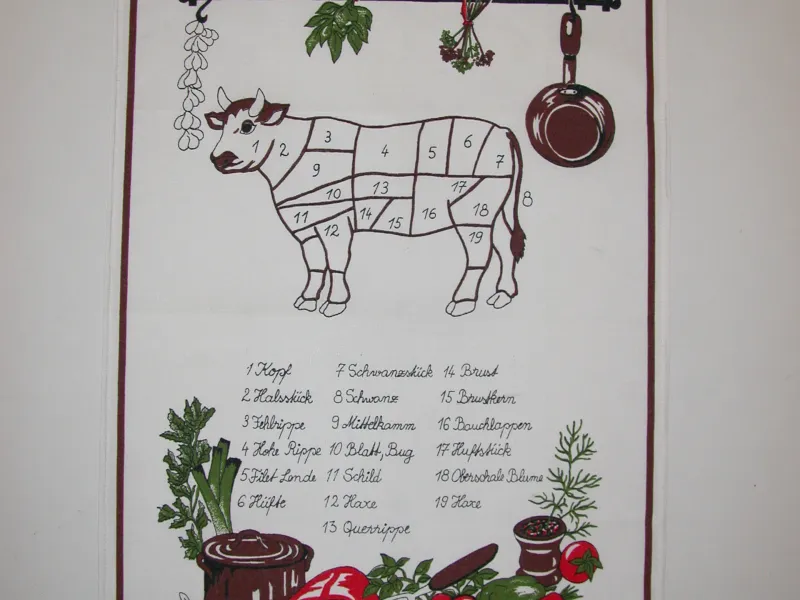 1
2
3
4
5
6
7
8
9
10
11
12
13
14
15
16
17
18
19
1 Kopf
2 Halsstück
3 Fehlrippe
4 Hohe Rippe
5 Filet Lende
6 Hüfte
7 Schwanzstück
8 Schwanz
9 Mittelkamm
10 Blatt, Bug
11 Schild
12 Haxe
13 Querrippe
14 Brust
15 Brustkern
16 Bauchlappen
17 Huftstück
18 Oberschale Blume
19 Haxe